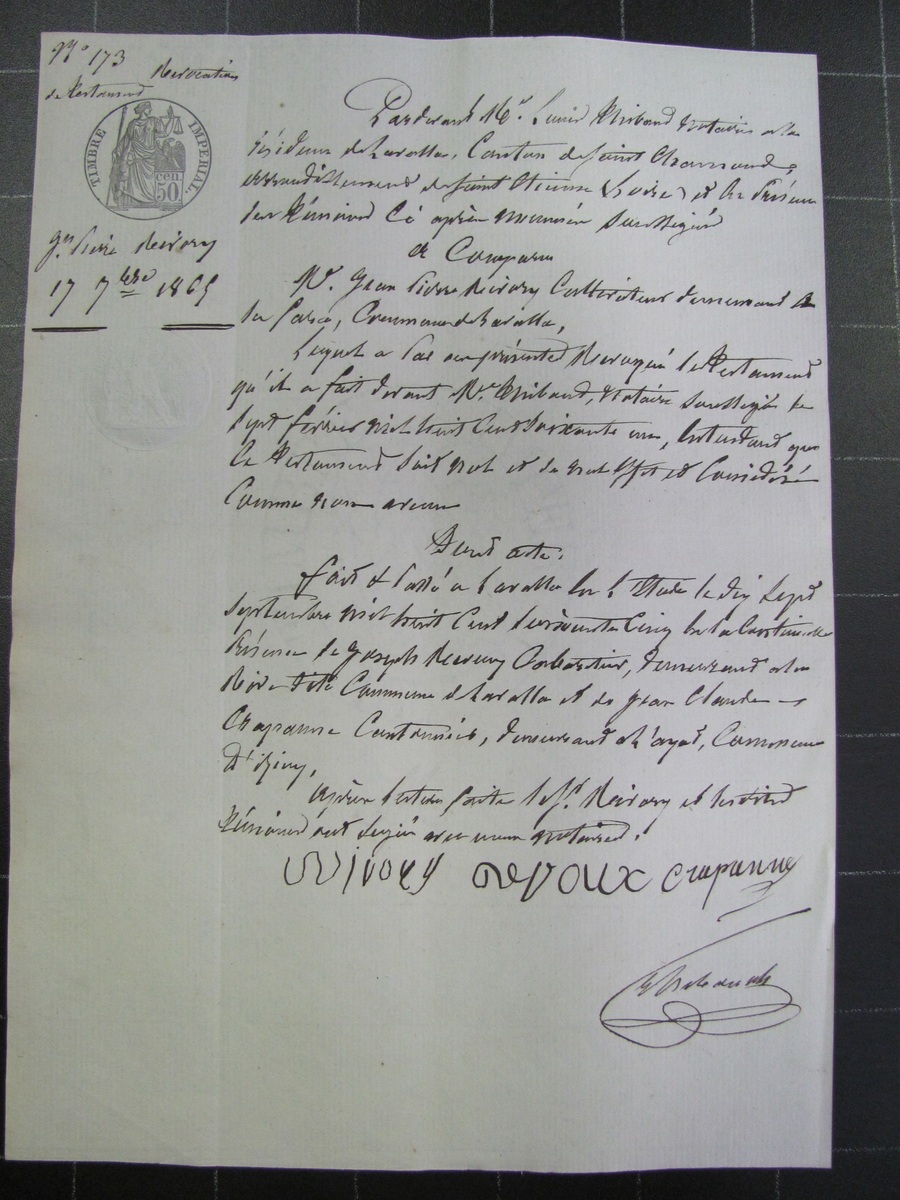 N° 173 Revocation
de testament
TIMBRE IMPERIAL
50 cen
Jn Pierre Rivory
17 7bre 1865
Pardevant Me Louis Thibaud Notaire à la
résidence de Lavalla, Canton de Saint Chamond,
arrondissement de Saint Etienne (Loire) et en présence
des témoins ci après nommés soussignés
a Comparu
Mr. Jean Pierre Rivory Cultivateur demeurant
Commune de Lavalla,
Lequel a par ces présentes Revoqué le testament
qu'il a fait devant Me Thibaud, Notaire soussigné le
sept février mil huit cent soixante un, Entendant que
Ce testament soit nul et de nul effet et Considéré
Comme non avenu
Dont acte.
fait & passé a Lavalla en l'Etude le dix sept
septembre mil huit Cent soixante Cinq en la
présence de Joseph demeurant a la
Commune de Lavalla et de Jean Claude
Chapanne Cantonnier, demeurant a Commune
D'Izieux,
après lecture faite le Sr. Rivory et les dits
témoins ont signé avec nous notaire.
Rivory devaux crapanne
Thibaud